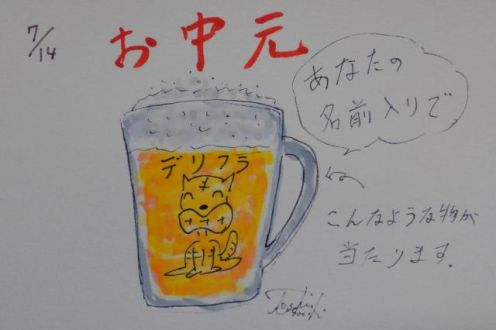 7/14
お中元
あなたの
名前入りで
デリフラ
こんなような物が
当たります.